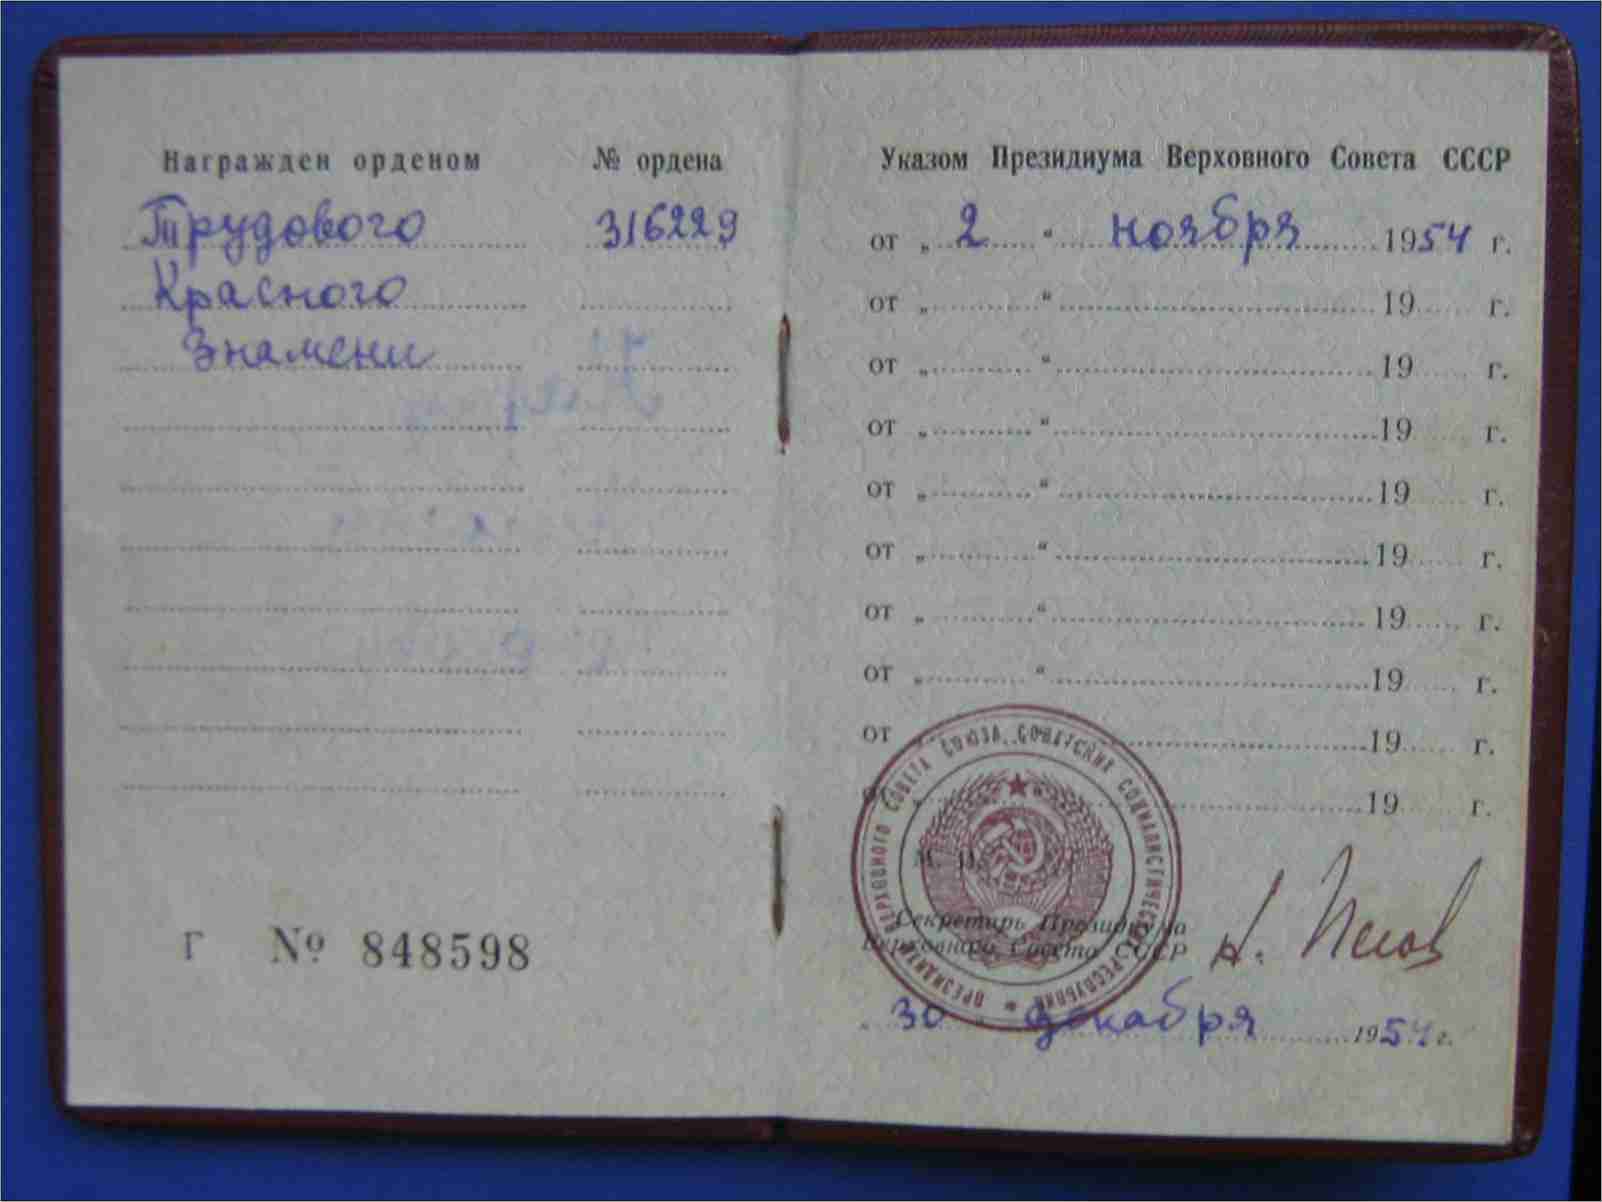 Награжден орденом № ордена
Трудового 316229
Красного
Знамени
Г № 848598
Указом Президиума Верховного Совета СССР
от „ 2 “ ноября 1954 г.
от „ “ 19 г.
от „ “ 19 г.
от „ “ 19 г.
от „ “ 19 г.
от „ “ 19 г.
от „ “ 19 г.
от „ “ 19 г.
от 19 г.
19 г.
ПРЕЗИДИУМ ВЕРХОВНОГО СОВЕТА СОЮЗА СОВЕТСКИХ СОЦИАЛИСТИЧЕСКИХ РЕСПУБЛИК
М. П.
Секретарь Президиума
Верховного Совета СССР
„ 30 “ декабря 1954 г.